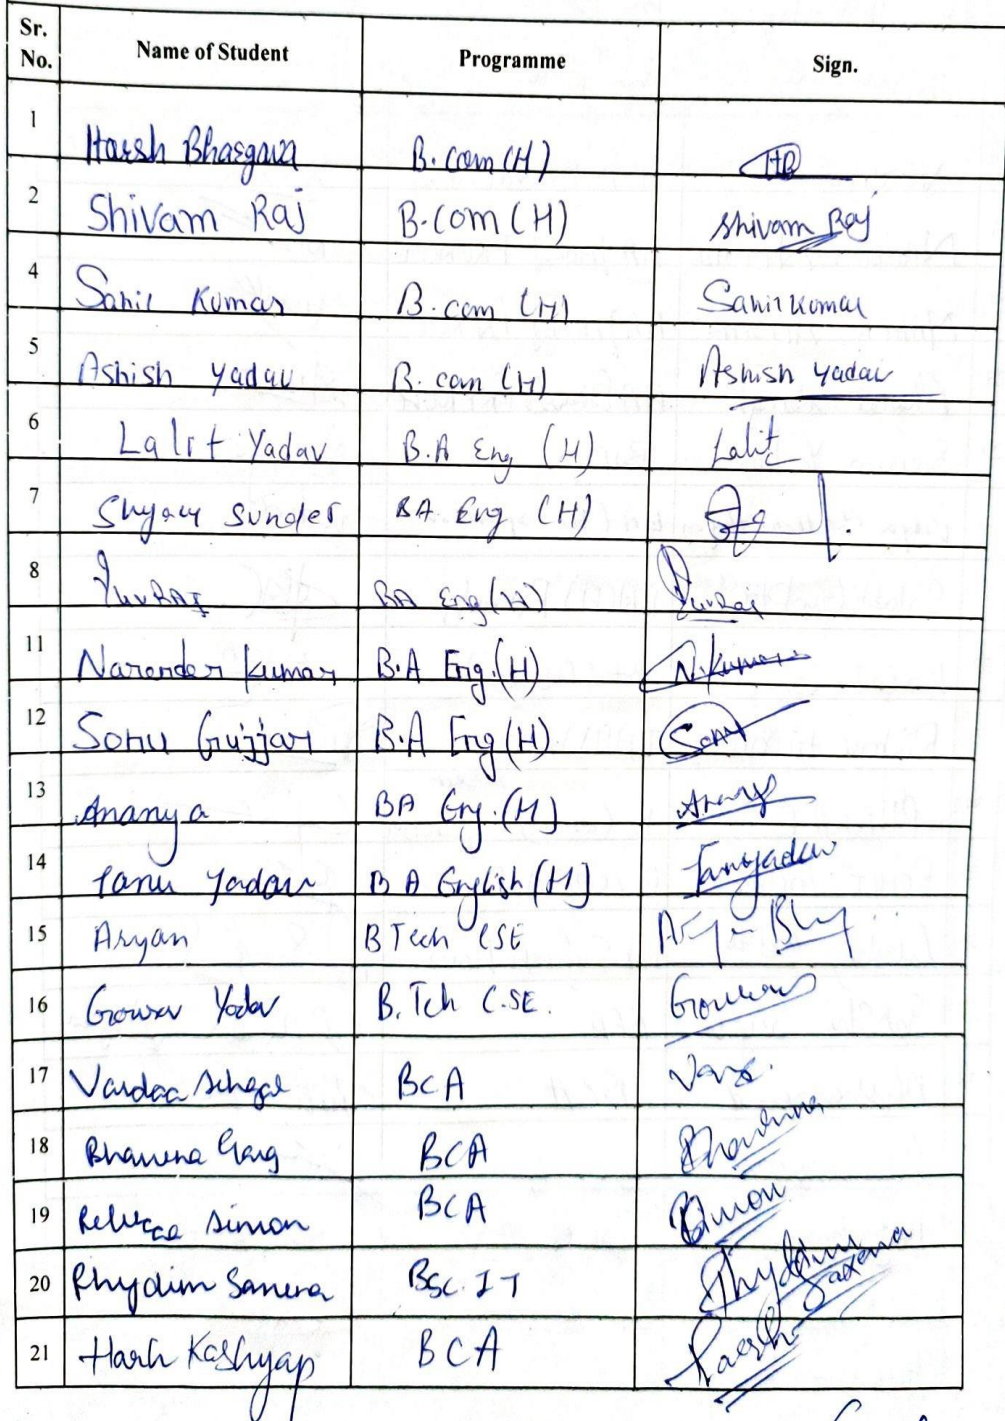 Sr. No. Name of Student Programme Sign.
1 Harsh Bhargava B.com (H) HB
2 Shivam Raj B.com (H) Shivam Raj
4 Sahil Kumar B.com (H) Sahil Kumar
5 Ashish Yadav B.com (H) Ashish Yadav
6 Lalit Yadav B.A Eng (H) Lalit
7 Shyam Sunder BA Eng (H)
8 YuvRAJ BA Eng (H) Yuvraj
11 Narender Kumar B.A Eng.(H) N.Kumar
12 Sonu Gujjar B.A Eng (H) Sonu
13 Ananya BA Eng.(H) Ananya
14 Tanu Yadav B A English (H) Tanuyadav
15 Aryan B Tech CSE
16 Gourav Yadav B.Tch C.SE. Gourav
17 Vardaa Sehgal BCA
18 Bhawna Garg BCA Bhawna
19 Rebecca Simon BCA Simon
20 Rhydim Saxena BSc. IT Rhydim Saxena
21 Harsh Kashyap BCA Harsh